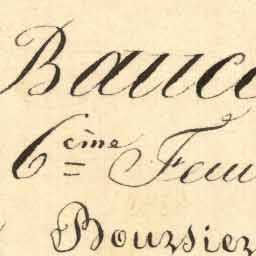 Bauce
6ème Feu
Boursier